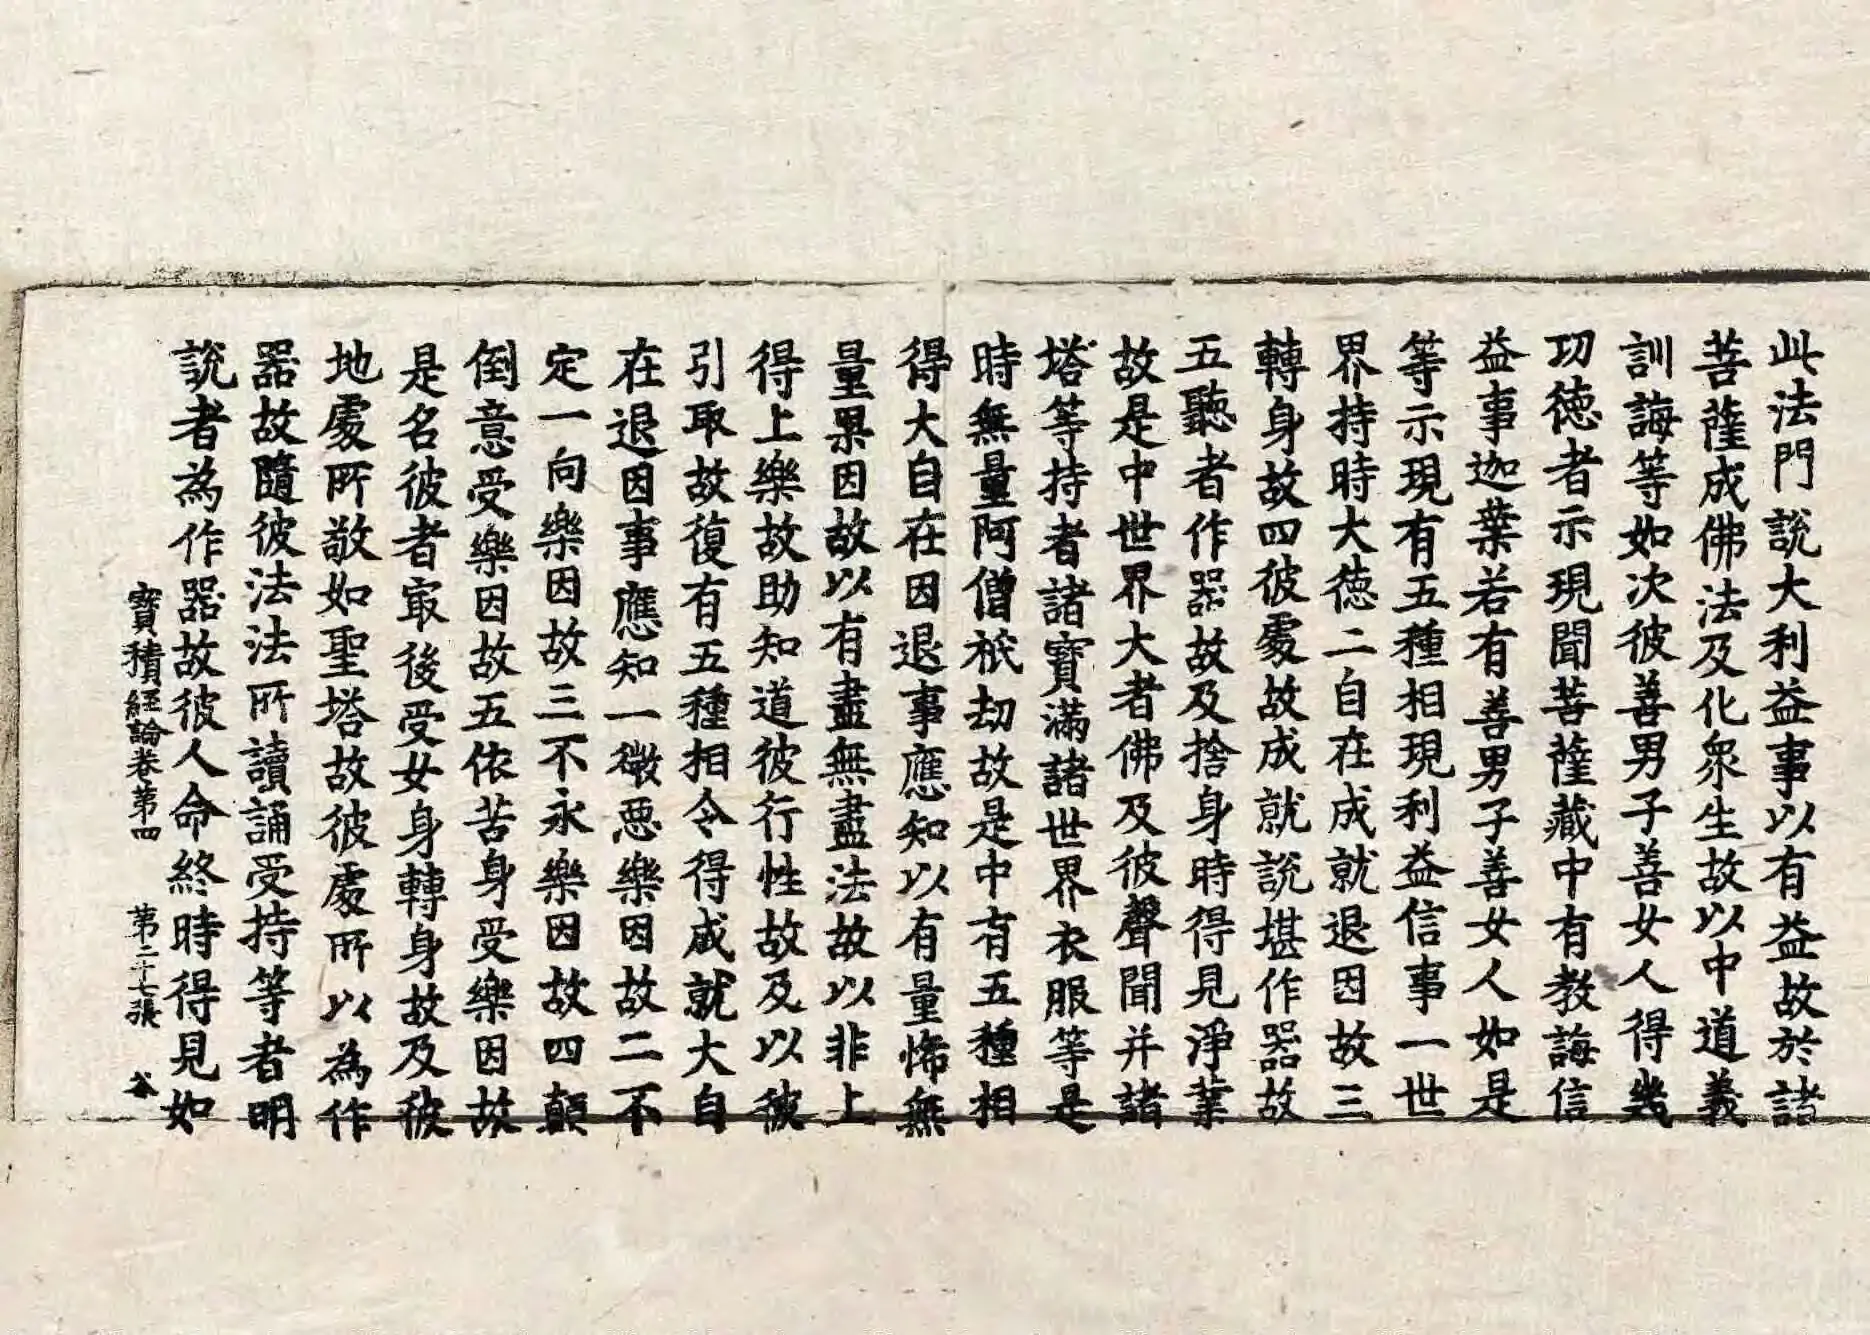 此法門說大利益事以有益故於諸
菩薩成佛法及化衆生故以中道義
訓誨等如次彼善男子善女人得幾
功徳者示現聞菩薩藏中有教誨信
益事迦葉若有善男子善女人如是
等示現有五種相現利益信事一世
界持時大徳二自在成就退因故三
轉身故四彼處故成就說堪作器故
五聽者作器故及捨身時得見淨業
故是中世界大者佛及彼聲聞并諸
塔等持者諸寶滿諸世界衣服等是
時無量阿僧祇劫故是中有五種相
得大自在因退事應知以有量悕無
量果因故以有盡無盡法故以非上
得上樂故助知道彼行性故及以彼
引取故復有五種相令得成就大自
在退因事應知一微惡樂因故二不
定一向樂因故三不永樂因故四顛
倒意受樂因故五依苦身受樂因故
是名彼者㝡後受女身轉身故及彼
地處所敬如聖塔故彼處所以為作
器故隨彼法法所讀誦受持等者明
說者為作器故彼人命終時得見如
寶積經論卷第四 第二十七張